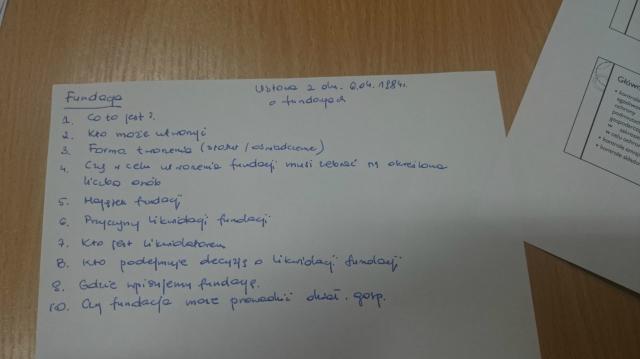 Fundacja
Ustawa z dn. 6.04.1984r.
o fundacjach
1. Co to jest?
2. Kto może utworzyć
3. Forma tworzenia (statut / oświadczenie)
4. Czy w celu utworzenia fundacji musi zebrać się określona
liczba osób
5. Majątek fundacji
6. Przyczyny likwidacji fundacji
7. Kto jest likwidatorem
8. Kto podejmuje decyzję o likwidacji fundacji
9. Gdzie wpisujemy fundację.
10. Czy fundacja może prowadzić dział. gosp.
Główn